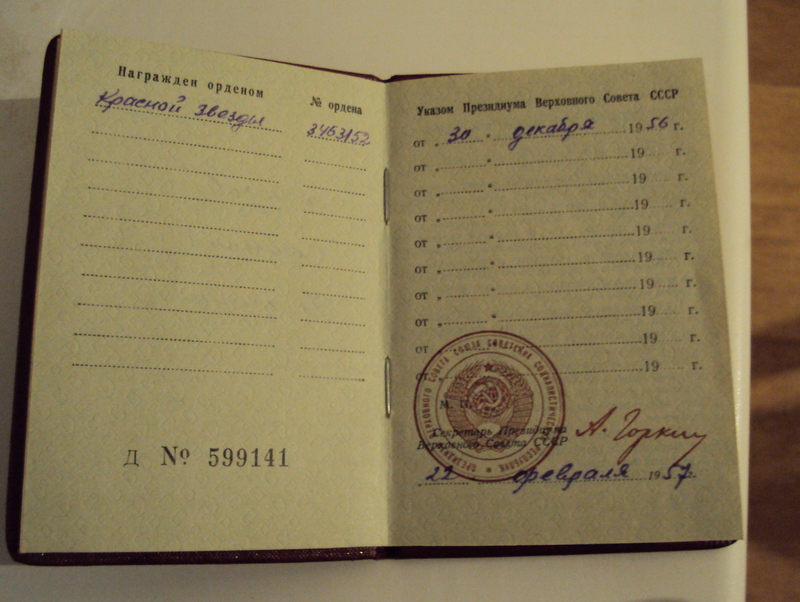 Награжден орденом
№ ордена
Красной Звезды
3463152
Д № 599141
Указом Президиума Верховного Совета СССР
от „ 30 " декабря 1956 г.
от „ " 19 г.
от „ " 19 г.
от „ " 19 г.
от „ " 19 г.
от „ " 19 г.
от „ " 19 г.
от „ " 19 г.
от „ " 19 г.
от 19 г.
М. П.
Секретарь Президиума
Верховного Совета СССР
А. Горкин
22 февраля 1957